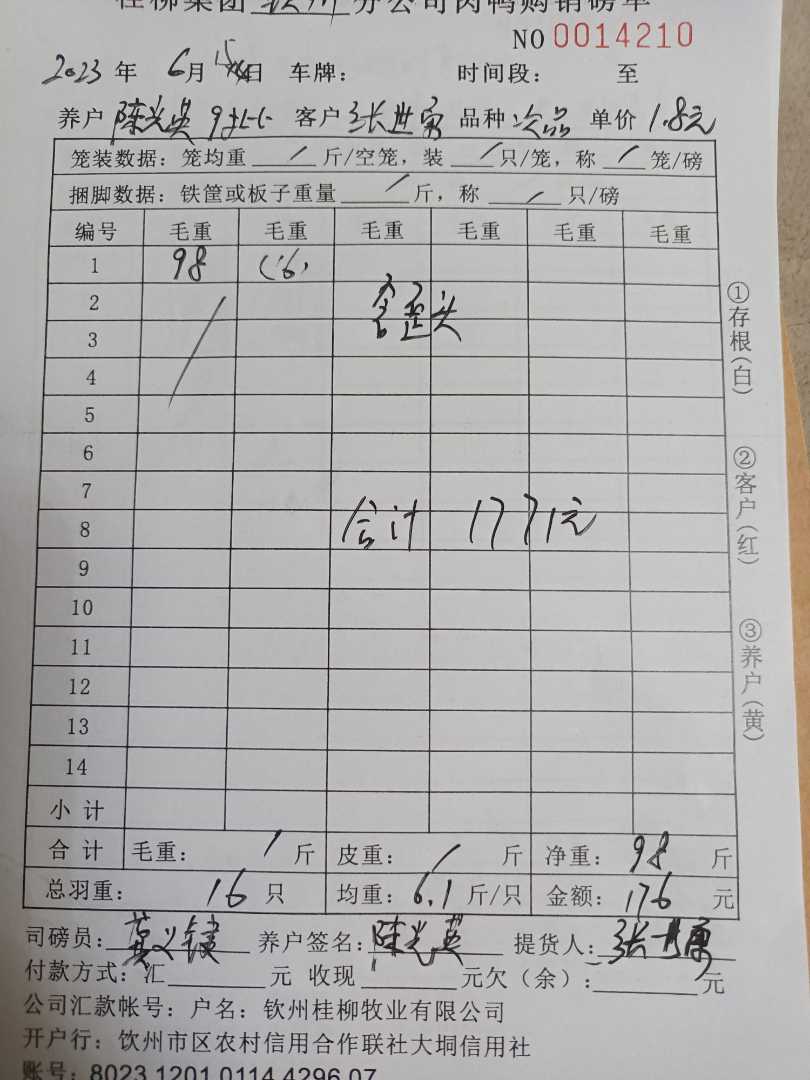 桂柳集团 钦州 分公司肉鸭购销磅单
NO 0014210
2023 年 6月 15日 车牌： 时间段： 至
养户 陈光英 客户 张世勇 品种 次品 单价 1.8元
笼装数据：笼均重 / 斤/空笼，装 / 只/笼，称 / 笼/磅
捆脚数据：铁筐或板子重量 / 斤，称 / 只/磅
编号 毛重 毛重 毛重 毛重 毛重 毛重
1 98 (16)
2 含歪头
3
4
5
6
7
8 合计 1771元
9
10
11
12
13
14
小计
合计 毛重： / 斤 皮重： / 斤 净重： 98 斤
总羽重： 16 只 均重： 6.1 斤/只 金额： 176 元
司磅员： 养户签名： 陈光英 提货人： 张世勇
付款方式：汇 元 收现 元欠（余）： 元
公司汇款帐号：户名：钦州桂柳牧业有限公司
开户行：钦州市区农村信用合作联社大垌信用社
账号：8023 1201 0114 4296 07
①存根（白）
②客户（红）
③养户（黄）